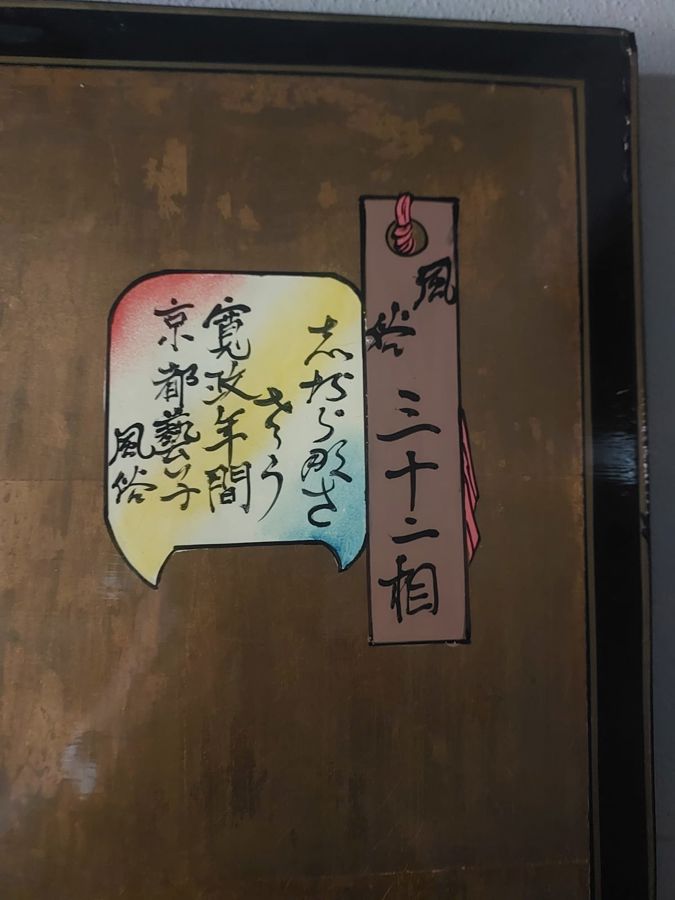 風俗三十二相
志だらなさ
さう
寛政年間
京都藝子
風俗